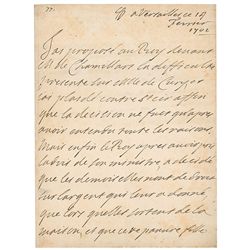 a Versailles ce 19
fevrier
1702
J'ay proposé au Roy devant
M. de Chamillart la difficulté
presente sur celle de
les plaidé contre afin
que la decision ne fust qu'apres
avoir entendu toute les raisons.
Mais enfin le Roy apres avoir pris
l'avis de son ministre a decidé
que les demoiselles n'ont de droit
sur l'argent qui leur a donné
que lors quelles sortent de la
maison, et que cette pauvre fille